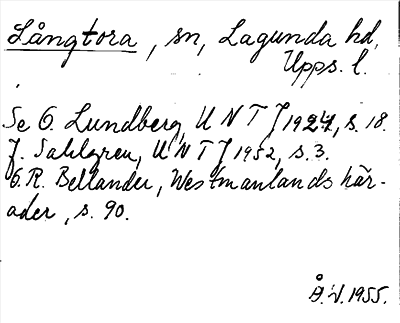 Långtora, sn, Lagunda hd,
Upps. l.
Se O. Lundberg, UNTJ 1927, s. 18.
J. Sahlgren, UNTJ 1952, s. 3.
C.R. Bellander, Westmanlands här-
ader, s. 90.
Å.V. 1955.